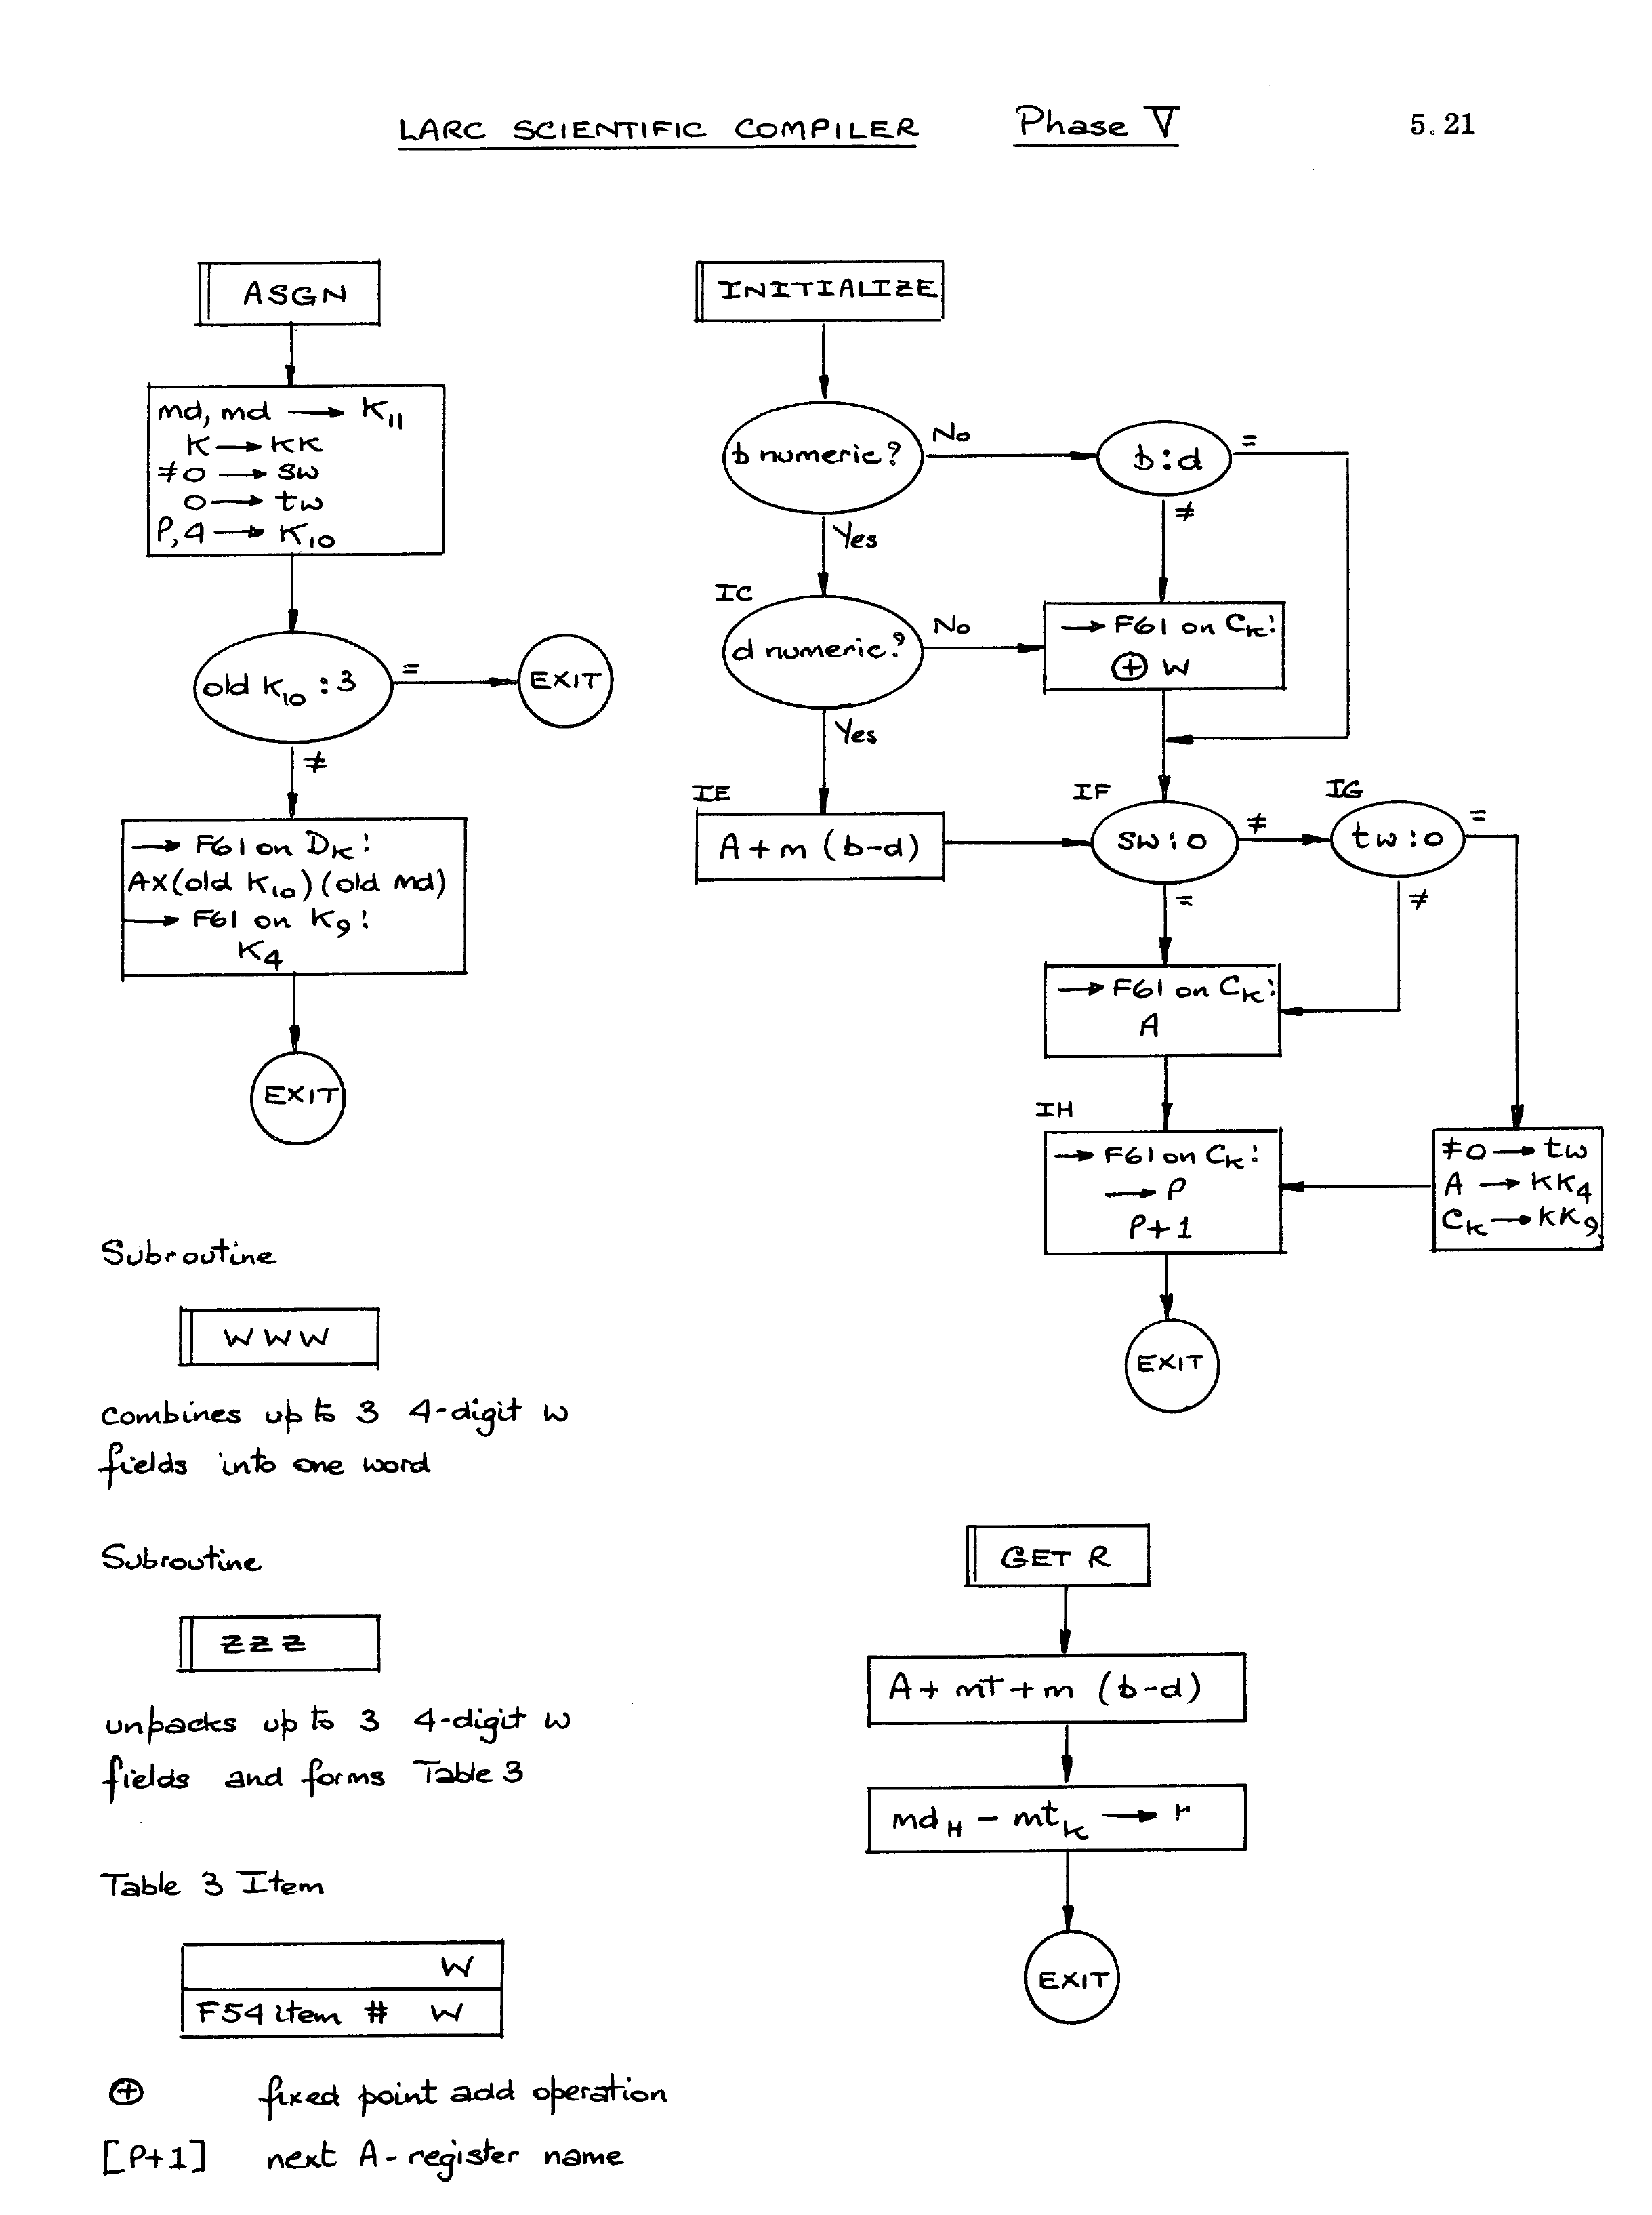 LARC SCIENTIFIC COMPILER Phase V 5.21
ASGN
md, md → K11
K → KK
≠0 → SW
0 → tw
P,4 → K10
old K10 : 3
=
EXIT
≠
→ F61 on DK!
AX(old K10)(old md)
→ F61 on K9!
K4
EXIT
INITIALIZE
b numeric?
No
b:d
=
≠
Yes
IC
d numeric?
No
→ F61 on CK!
⊕ W
Yes
IE
A + m (b-d)
IF
SW:0
≠
IG
tw:0
=
=
≠
→ F61 on CK!
A
IH
→ F61 on CK!
→ P
P+1
≠0 → tw
A → KK4
CK → KK9
EXIT
Subroutine
WWW
combines up to 3 4-digit w
fields into one word
Subroutine
ZZZ
unpacks up to 3 4-digit w
fields and forms Table 3
Table 3 Item
W
F54 item # W
⊕ fixed point add operation
[P+1] next A-register name
GET R
A + mT + m (b-d)
mdH - mtK → r
EXIT